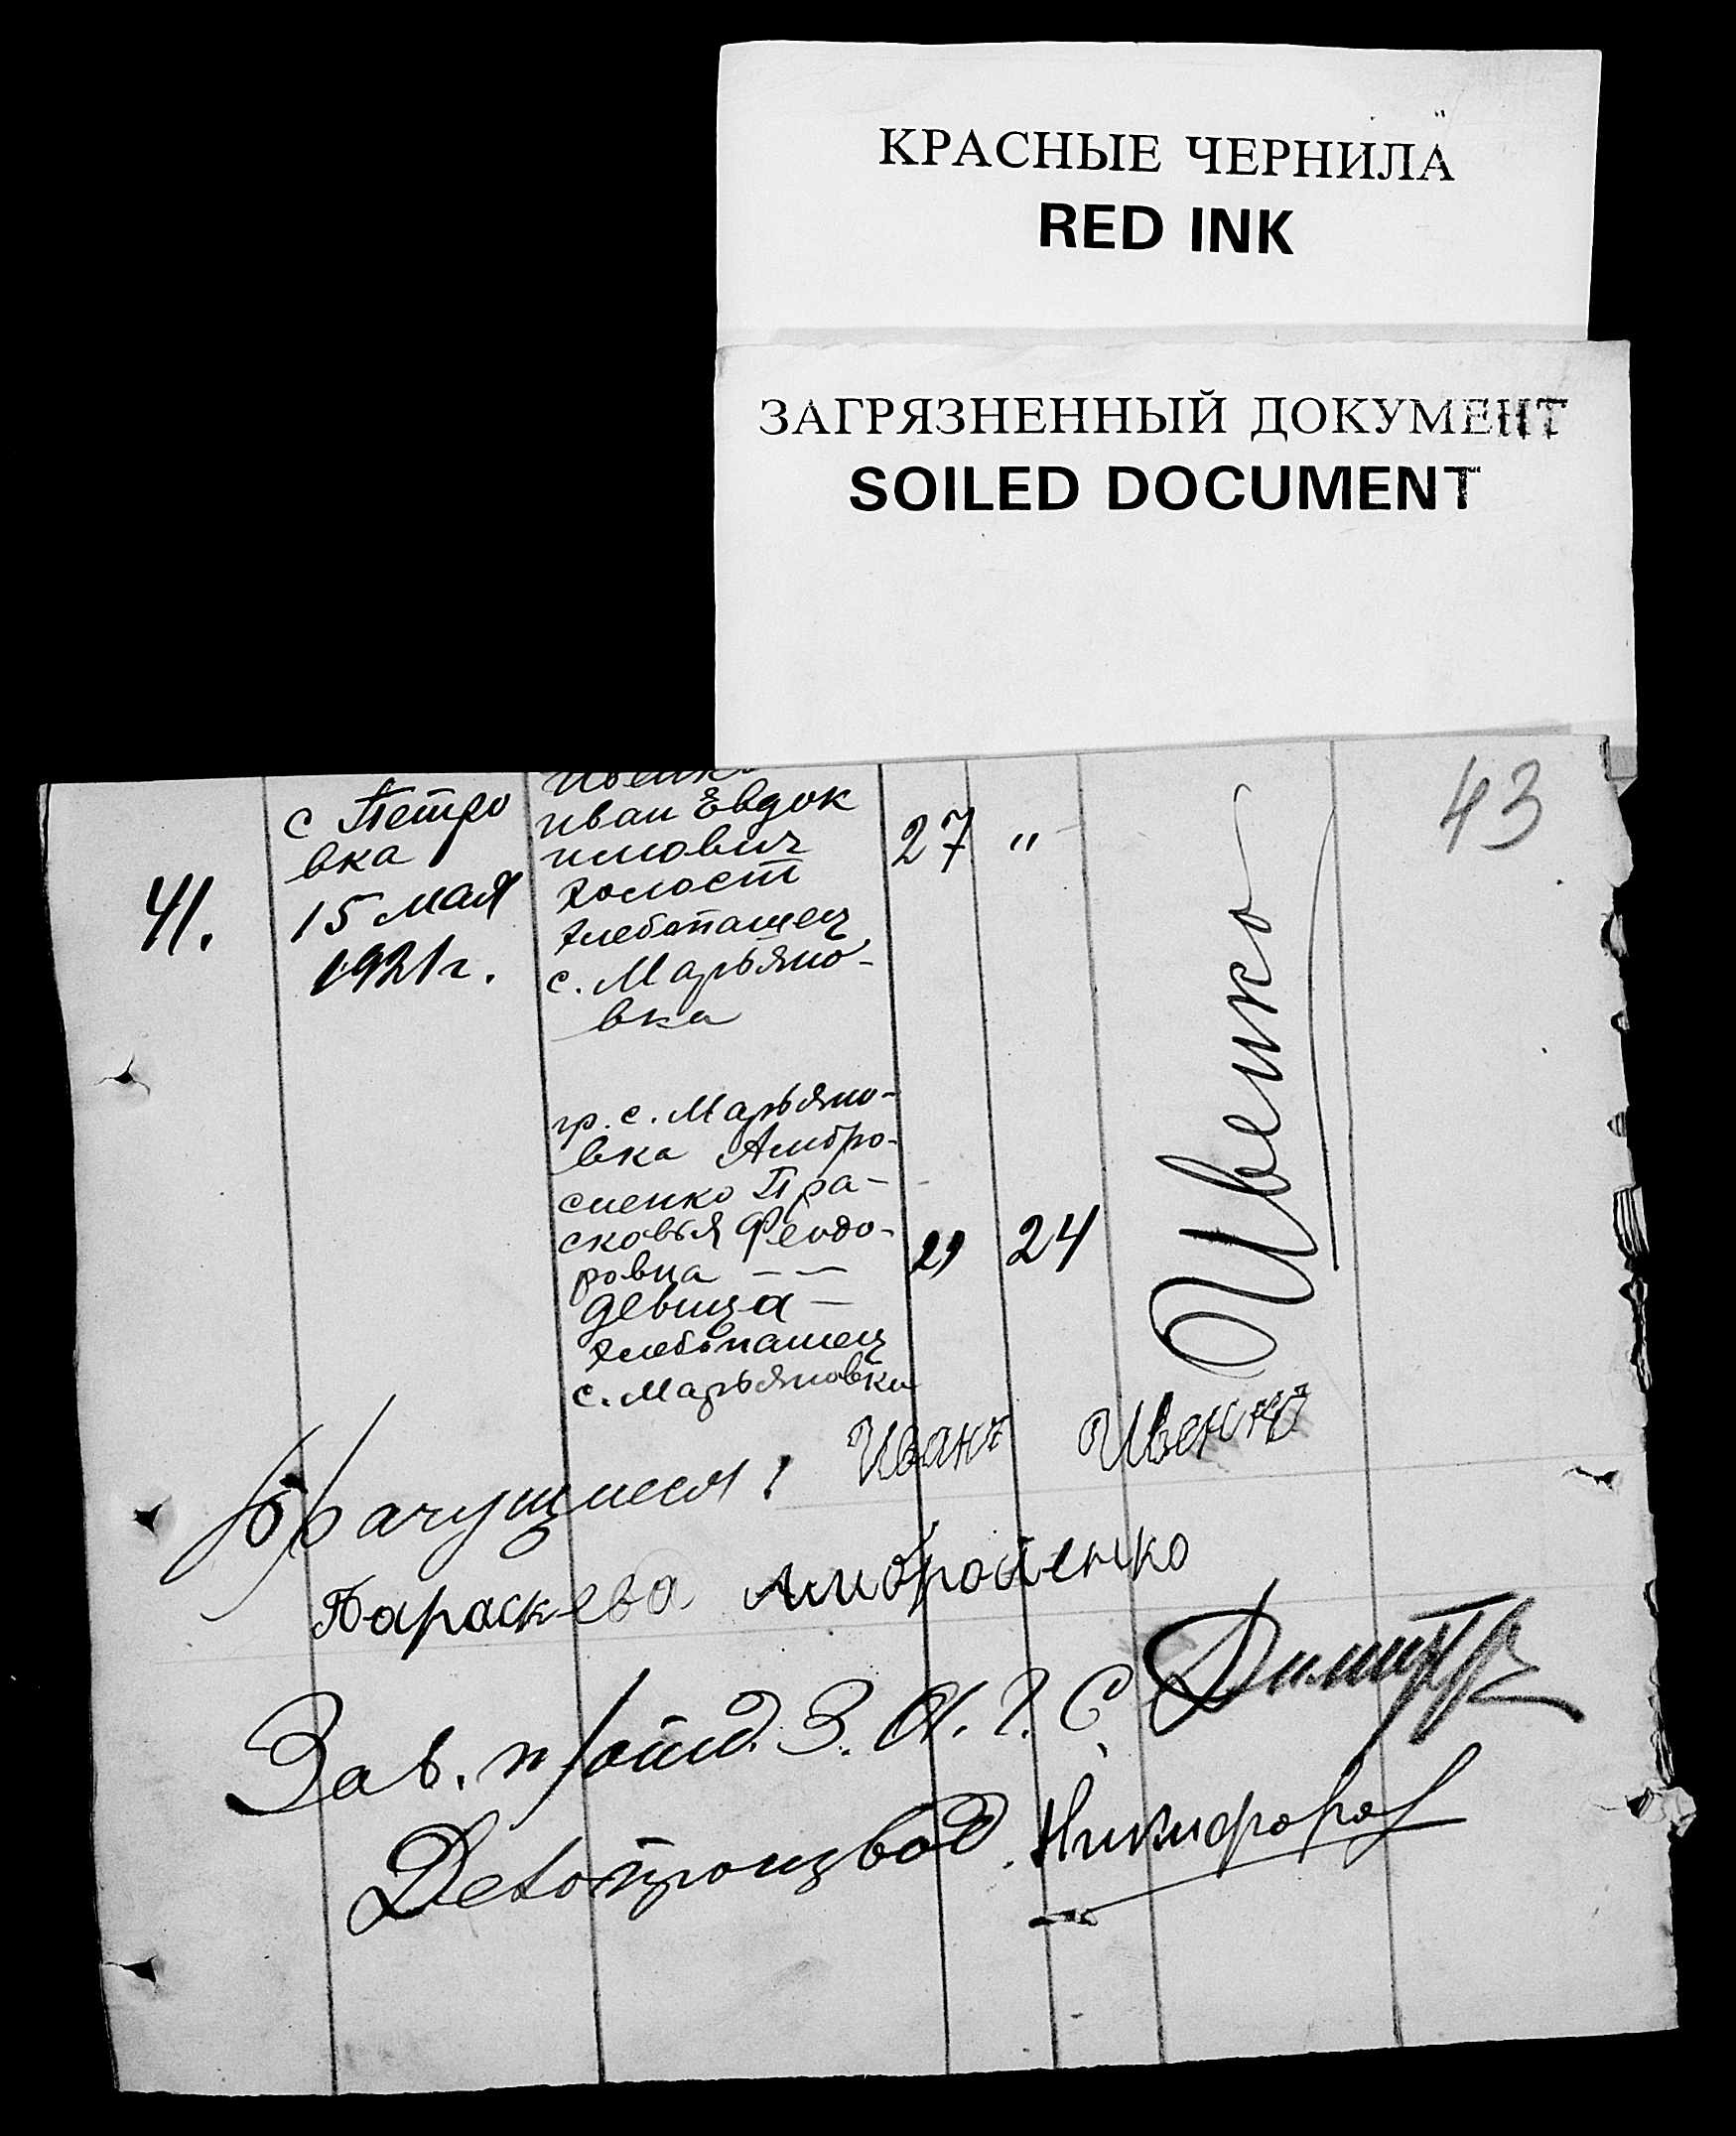 КРАСНЫЕ ЧЕРНИЛА
RED INK
ЗАГРЯЗНЕННЫЙ ДОКУМЕНТ
SOILED DOCUMENT
43
41.
с Петро
вка
15 мая
1921 г.
Иван Евдок
имович
холост
хлебопашец
с. Марьяно-
вка
27 "
гр. с. Марьяно-
вка Амбро-
сиенко Пра-
сковья Феодо-
ровна — —
девица —
хлебопашец
с. Марьяновки
" 24
Ивенко
Брачущиеся: Иванъ Ивенко
Параскева Амбросиенко
Зав. п/отд. З. А. Г. С.
Делопроизвод. Никифоров